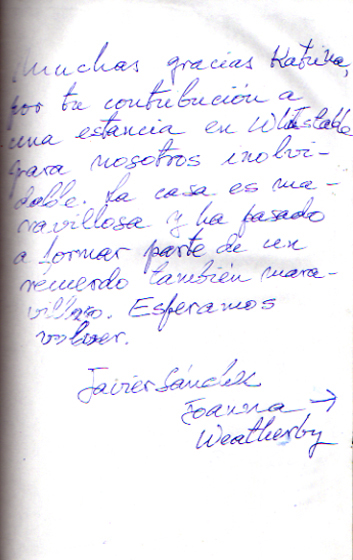 Muchas gracias Katrina,
por tu contribución a
una estancia en Whitstable
para nosotros inolvi-
dable. La casa es ma-
ravillosa y ha pasado
a formar parte de un
recuerdo también mara-
villoso. Esperamos
volver.
Javier Sánchez
Joanna →
Weatherby